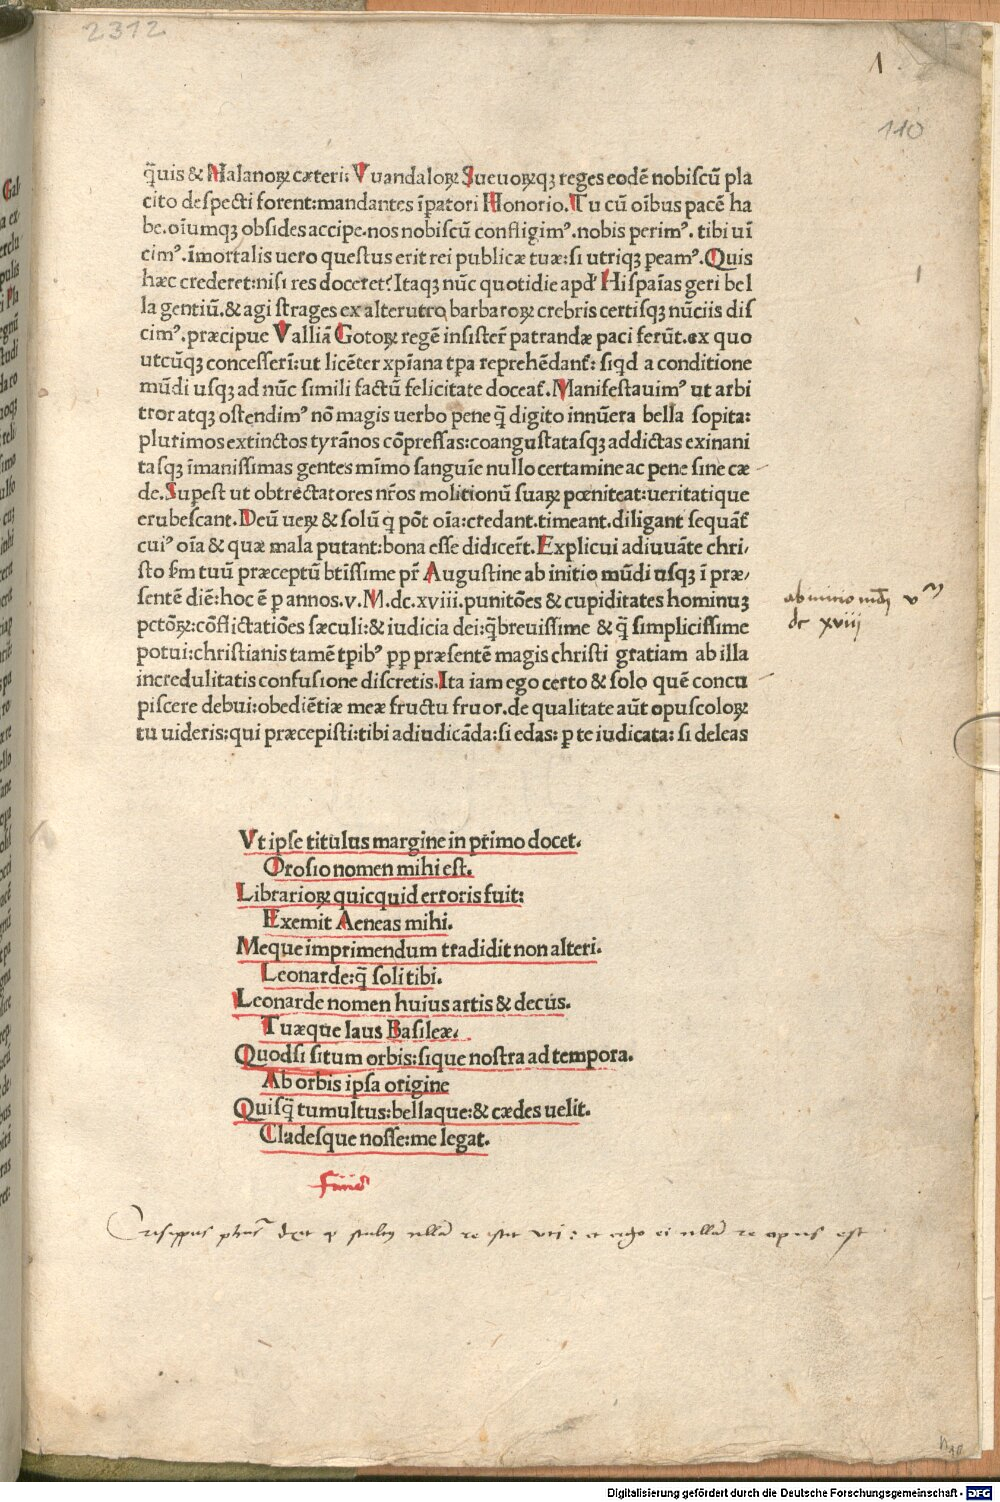 2312
1
110
q̄uis & Malanoꝝ cæteri: Vuandaloꝝ Sueuoꝝqꝫ reges eodē nobiscū pla
cito despecti forent:mandantes īpatori Honorio. Tu cū oībus pacē ha
be.oīumqꝫ obsides accipe.nos nobiscū confligimꝰ.nobis perimꝰ. tibi uī
cimꝰ.īmortalis uero questus erit rei publicæ tuæ:si utriqꝫ ꝑeamꝰ.Quis
hæc crederet:nisi res doceret? Itaqꝫ nūc quotidie apđ Hispaīas geri bel
la gentiū.& agi strages ex alterutro barbaroꝝ crebris certisqꝫ nūciis dis
cimꝰ.præcipue Valliā Gotoꝝ regē insister̄ patrandæ paci ferūt.ex quo
utcūqꝫ concesserī:ut licēter xp̄iana tp̄a reprehēdant̄: siqd a conditione
mūdi usqꝫ ad nūc simili factū felicitate doceat̄.Manifestauimꝰ ut arbi
tror atqꝫ ostendimꝰ nō magis uerbo pene q̄ digito innūera bella sopita:
plurimos extinctos tyrānos cōpressas:coangustatasqꝫ addictas exinani
tasqꝫ īmanissimas gentes mīmo sanguīe nullo certamine ac pene sine cæ
de.Supest ut obtrectatores nr̄os molitionū suaꝝ pœniteat:ueritatique
erubescant.Deū ueꝝ & solū q pōt oīa:credant.timeant.diligant sequāt̄
cuiꝰ oīa & quæ mala putant:bona esse didicer̄t.Explicui adiuuāte chri/
sto s̄m tuū præceptū btīssime pr̄ Augustine ab initio mūdi usqꝫ ī præ/
sentē diē:hoc ē ꝑ annos.v.M.dc.xviii.punitōes & cupiditates hominuꝫ
pctōꝝ:cōflictatiōes sæculi:& iudicia dei:q̄breuissime & q̄ simplicissime
potui:christianis tamē tꝑibꝰ ꝓꝑ præsentē magis christi gratiam ab illa
incredulitatis confusione discretis.Ita iam ego certo & solo quē concu
piscere debui:obediētiæ meæ fructu fruor.de qualitate aūt opuscoloꝝ
tu uideris:qui præcepisti:tibi adiudicāda:si edas: ꝑ te iudicata: si deleas
ab initio mūdi vᵐ
dc xviij
Vt ipse titulus margine in primo docet.
Orosio nomen mihi est.
Librarioꝝ quicquid erroris fuit:
Exemit Aeneas mihi.
Meque imprimendum tradidit non alteri.
Leonarde:q̄ soli tibi.
Leonarde nomen huius artis & decus.
Tuæque laus Basileæ.
Quodsi situm orbis:sique nostra ad tempora.
Ab orbis ipsa origine
Quisq̄ tumultus:bellaque:& cædes uelit.
Cladesque nosse:me legat.
Finis
Crisippus phūs dixit stultū nulla re uti: et ergo ei nulla re opus est
Digitalisierung gefördert durch die Deutsche Forschungsgemeinschaft - DFG